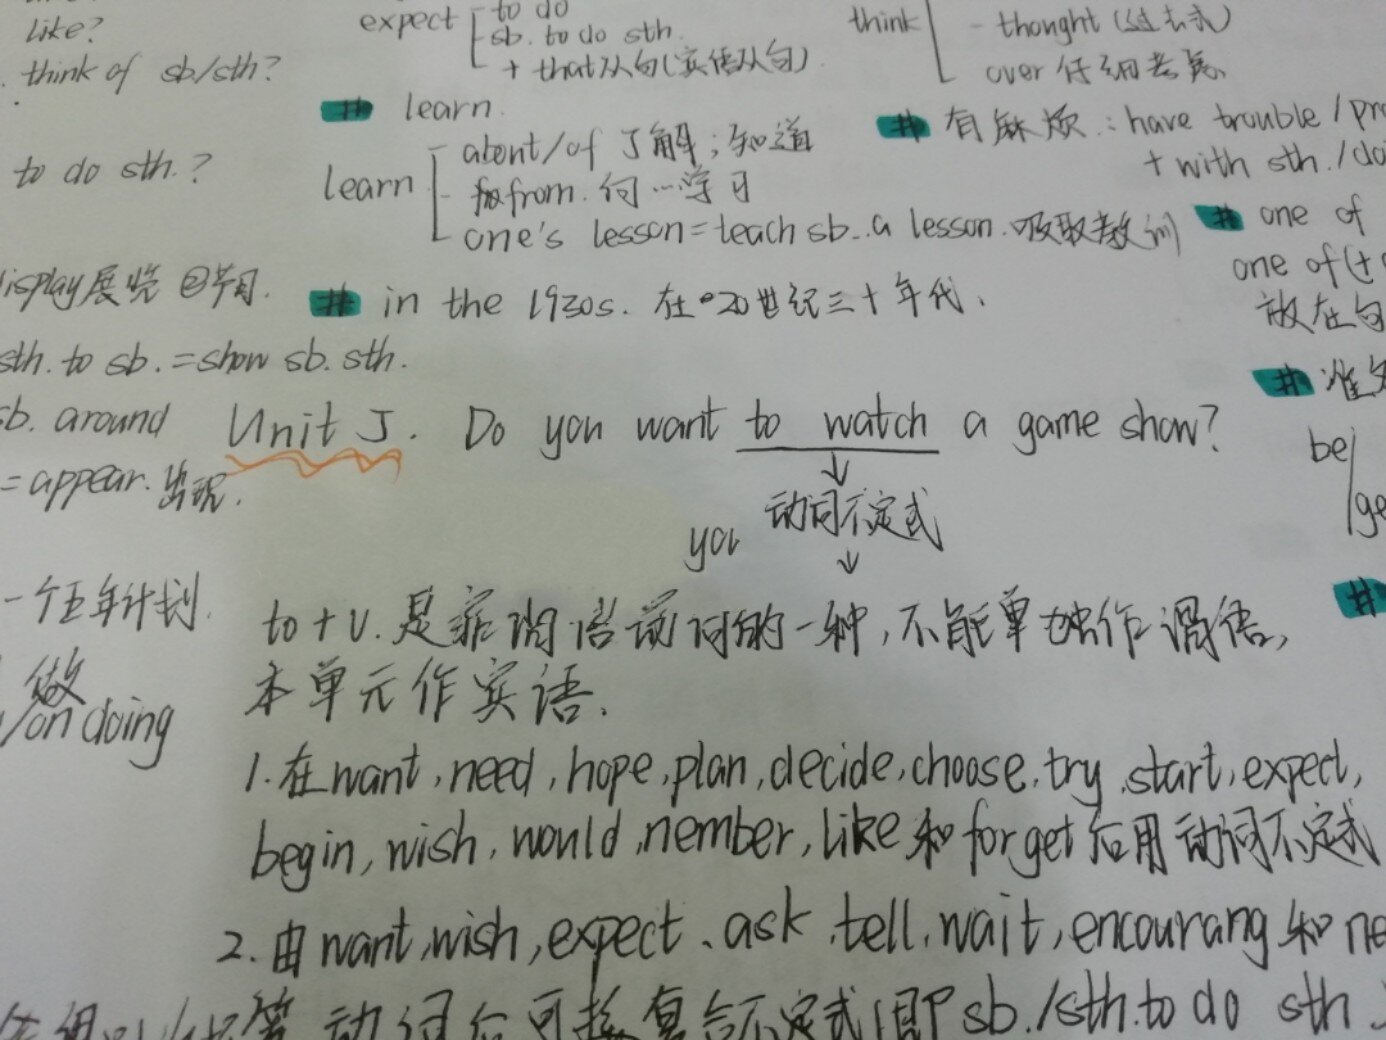 like?
think of sb/sth?
to do sth.?
display展览
sth. to sb. = show sb. sth.
sb. around
= appear. 出现.
一个五年计划.
做
/on doing
expect
to do
sb. to do sth.
+ that从句(宾语从句)
think
- thought (过去式)
over 仔细考虑
# learn.
learn
about/of 了解；知道
from. 向…学习
one's lesson = teach sb. a lesson. 吸取教训
# in the 1930s. 在20世纪三十年代.
# 有麻烦: have trouble / pr
+ with sth. /doi
# one of
one of (+
放在句
# 准备
be/
/ge
#
Unit 5. Do you want to watch a game show?
↓
动词不定式
you
↓
to + v. 是非谓语动词的一种, 不能单独作谓语,
本单元作宾语.
1. 在want, need, hope, plan, decide, choose, try, start, expect,
begin, wish, would, nember, like 和 forget 后用动词不定式
2. 由want, wish, expect、ask, tell, wait, encourang 和 ne
等 动词后可接复合不定式(即 sb./sth. to do sth.